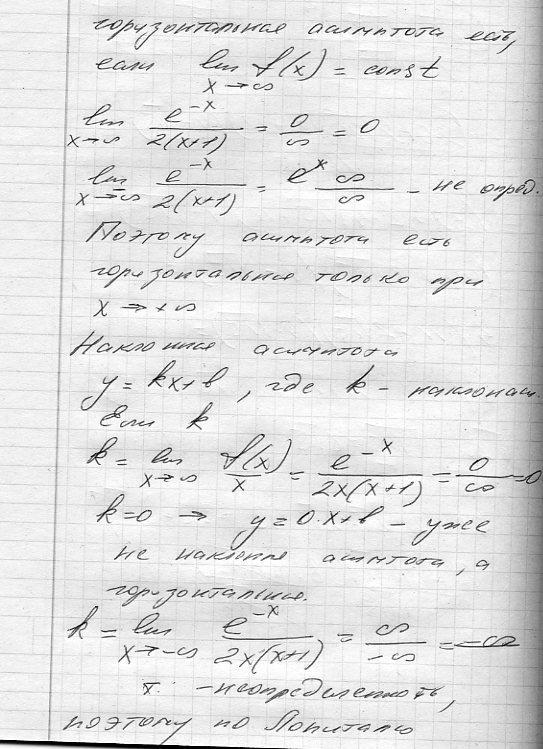 горизонтальная асимптота есть,
если lim f(x) = const
x→∞
lim e^{-x} / 2(x+1) = 0/∞ = 0
x→∞
lim e^{-x} / 2(x+1) = ∞/∞ - не опред.
x→-∞
Поэтому асимптота есть
горизонтальная только при
x → +∞
Наклонная асимптота
y = kx + b, где k - наклонная.
Если k
k = lim f(x)/x = e^{-x} / 2x(x+1) = 0/∞ = 0
x→∞
k=0 → y = 0·x+b - уже
не наклонная асимптота, а
горизонтальная.
k = lim e^{-x} / 2x(x+1) = ∞/-∞ = -∞
x→-∞
- неопределенность,
поэтому по Лопиталю